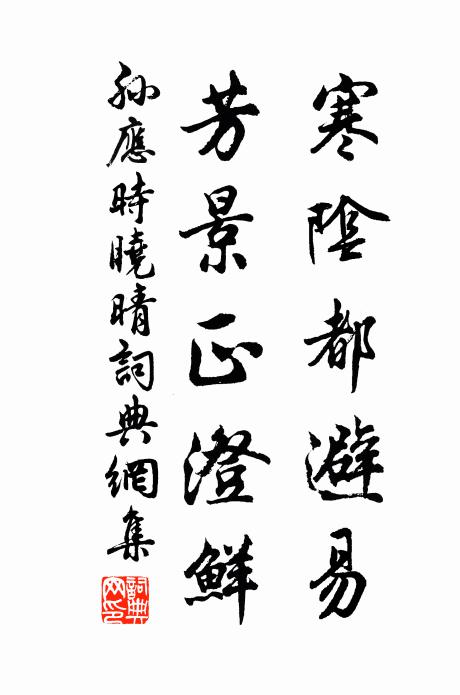 寒陰都避易
芳景正澄鮮
孫應時曉晴詞典網集
詞典網印